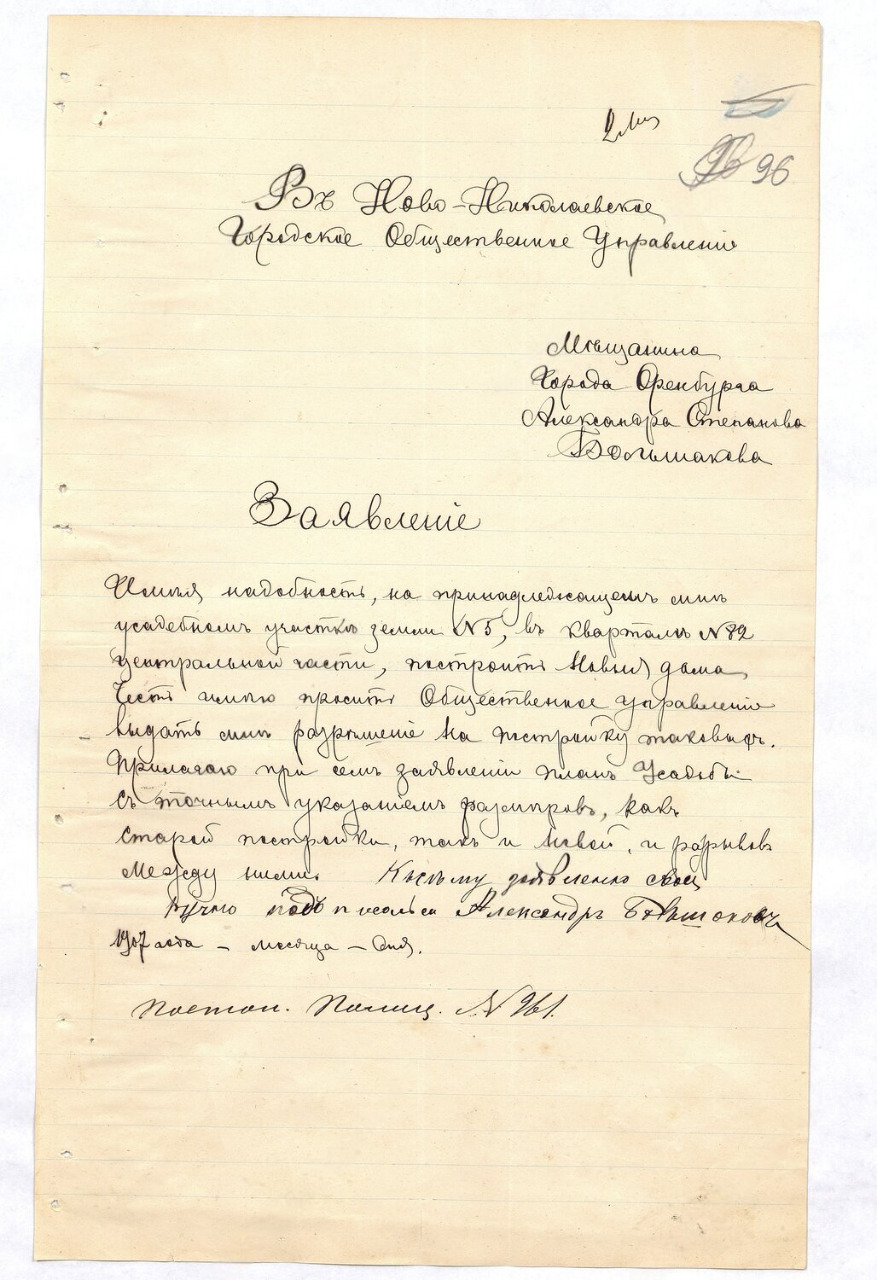 96
Въ Ново-Николаевское
Городское Общественное Управленіе
Мѣщанина
Города Оренбурга
Александра Степанова
Большакова
Заявленіе
Имѣя надобность, на принадлежащемъ мнѣ
усадебномъ участкѣ земли №5, въ кварталѣ №82
центральной части, построить новыя дома,
Честь имѣю просить Общественное управленіе
выдать мнѣ разрѣшеніе на постройку таковыхъ.
Прилагаю при семъ заявленіи планъ усадьбы
съ точнымъ указаніемъ размѣровъ, какъ
старой постройки, такъ и новой, и разрывовъ
между ними. Къ сѣму заявленію свои
ручно подъписалься Александръ Большаковъ
1907 года – мѣсяца – дня.
№ 961.